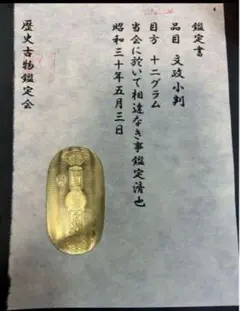 鑑定書
品目 文政小判
目方 十二グラム
当会に於いて相違なき事鑑定済也
昭和三十年五月三日
歴史古物鑑定会